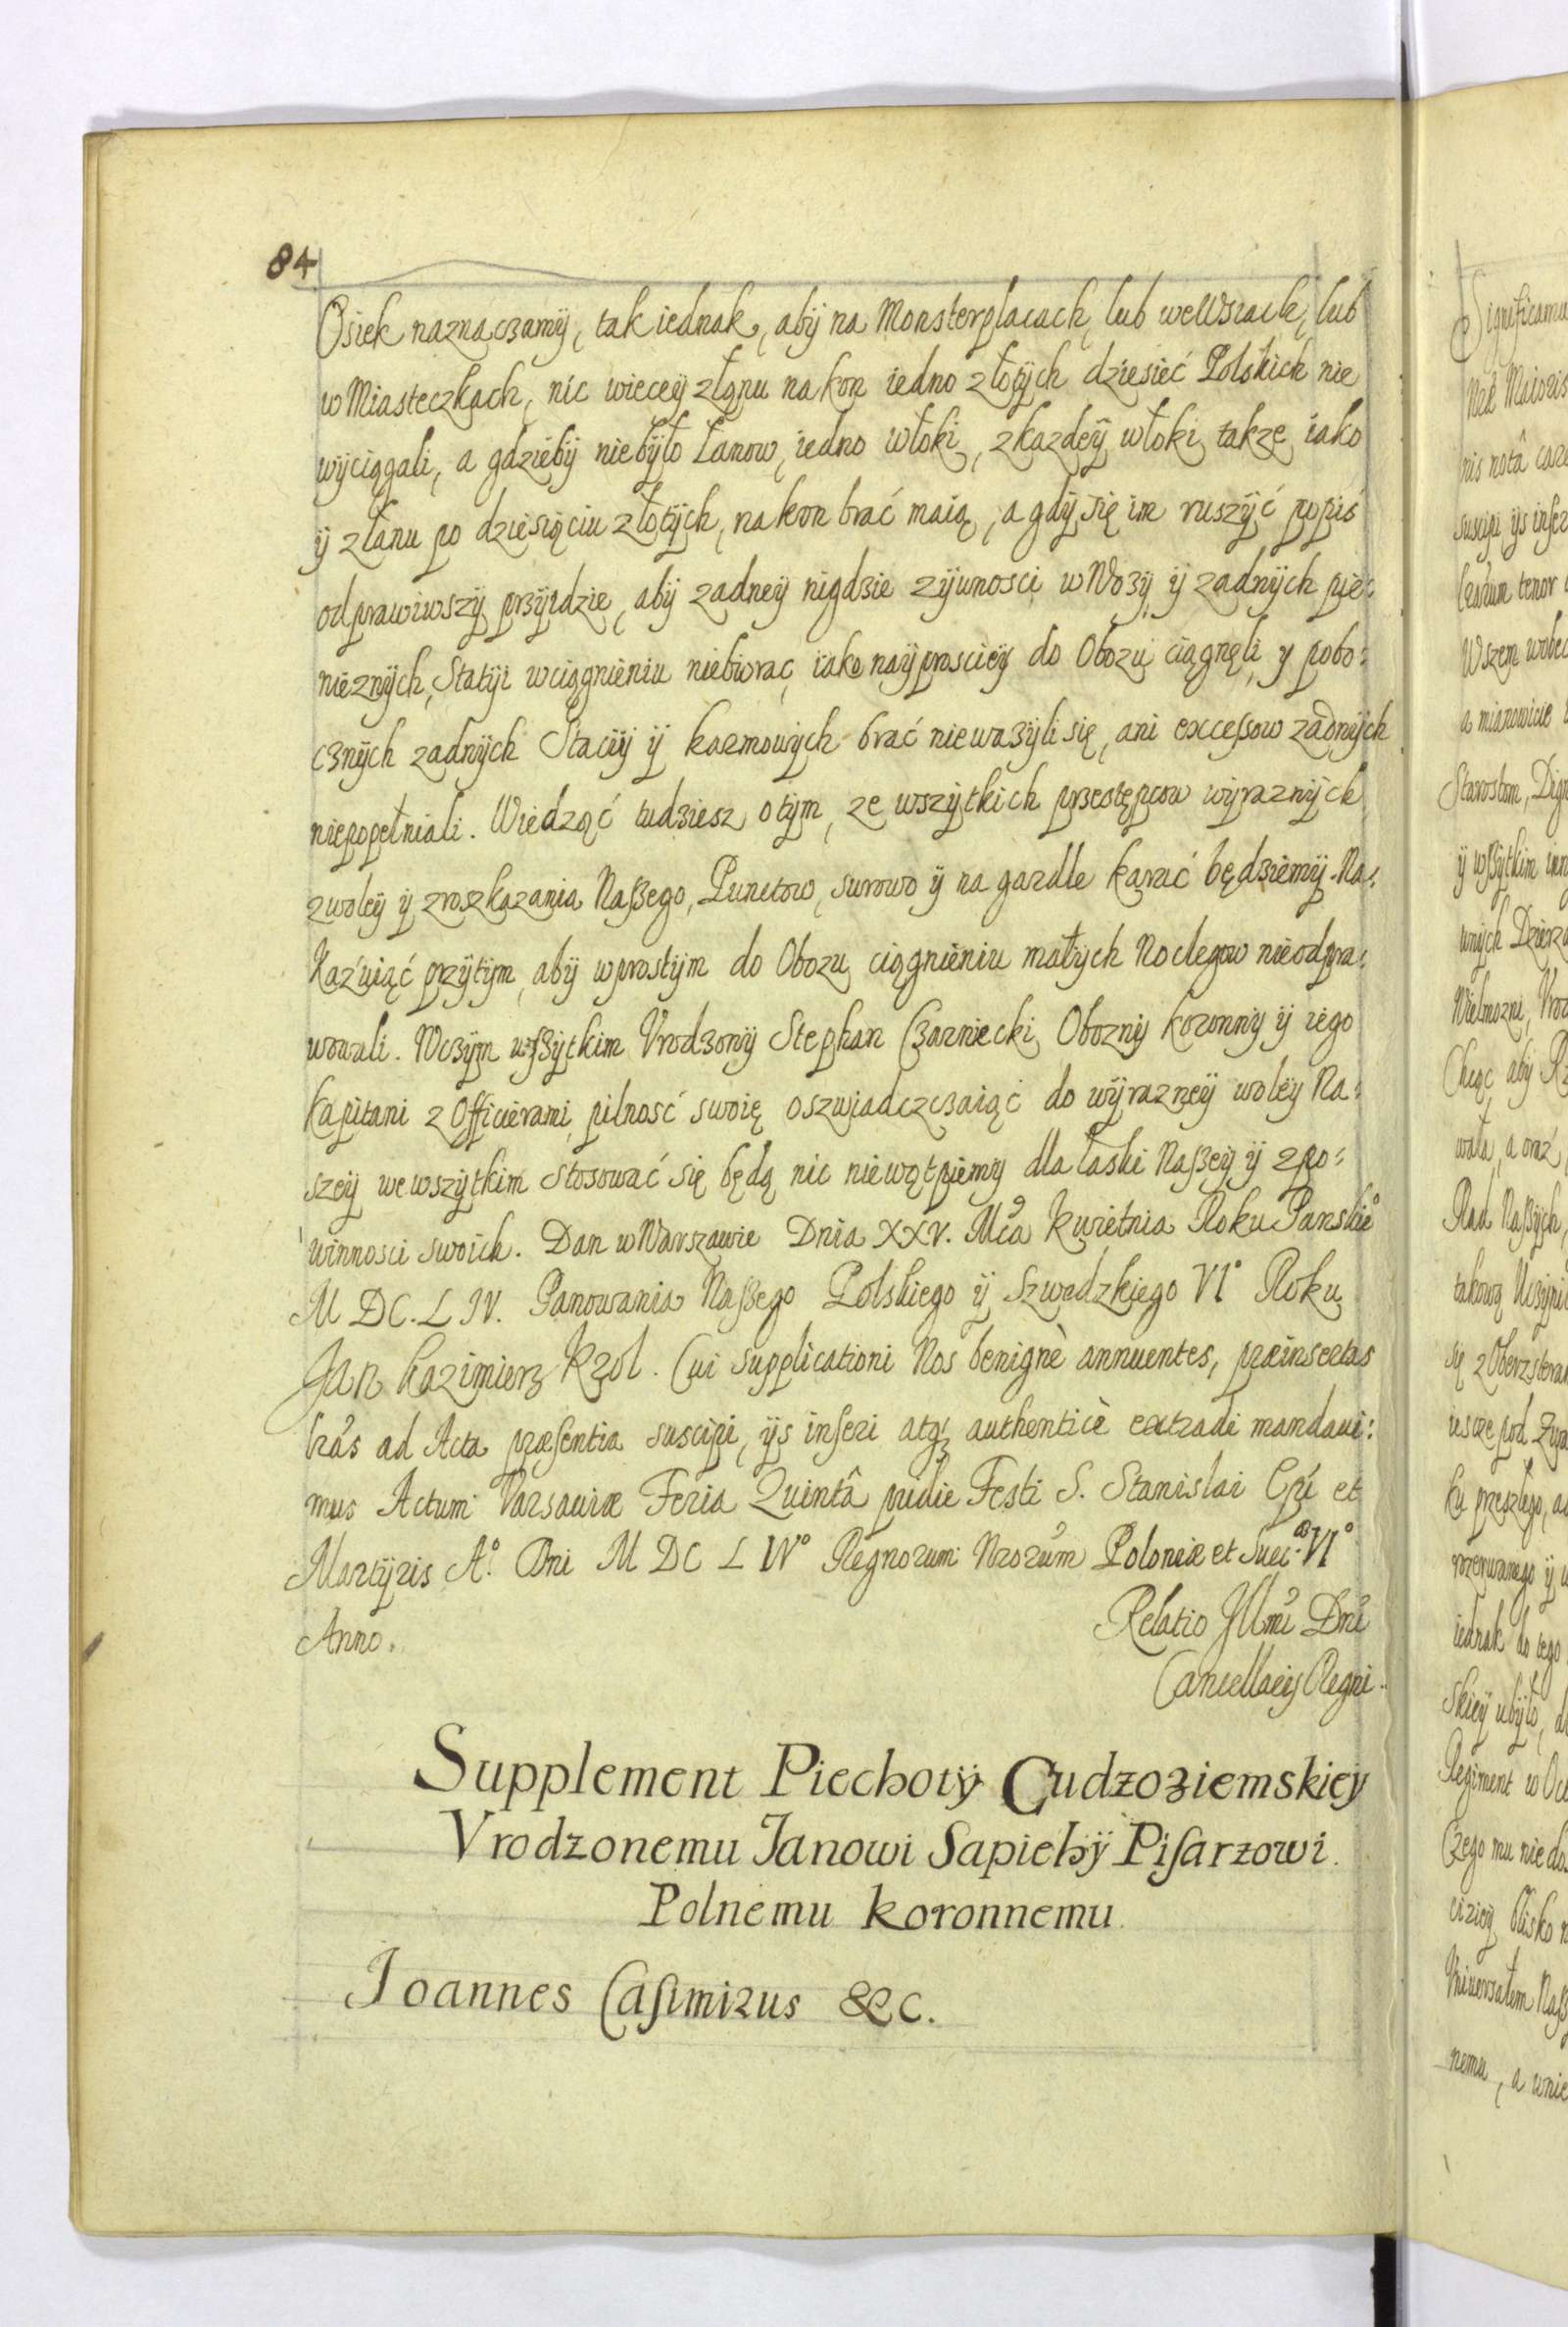 84
Osiek naznaczamÿ, tak iednak, abÿ na Monsterplacach, lub weWsiach, lub
w Miasteczkach, nic wieceÿ złanu na kon iedno złotÿch dziesieć Polskich nie
wÿciągali, a gdziebÿ niebÿło Łanow, iedno włoki, zkazdeÿ włoki takze iako
ÿ złanu po dziesiąciu złotÿch, na kon brać maią, a gdÿ się im ruszÿć popis
odprawiwszÿ przÿidzie, abÿ zadneÿ nigdzie zÿwnosci w Wozÿ, ÿ zadnÿch pie:
nieznÿch, Statÿi wciągnieniu niebiorąc, iako naÿprosciey do Obozu ciągnęli, y pobo:
cznÿch zadnÿch Staciÿ ÿ karmowÿch brać niewazÿli się, ani excessow zadnÿch
niepopełniali. Wiedząć tudziesz o tÿm, ze wszÿtkich przestępcow wÿraznÿch
zwoleÿ ÿ zroszkazania Naszego, Punctow, surowo ÿ na gardle karać będziemÿ. Na:
kazuiąć przÿtÿm, abÿ wprostÿm do Obozu ciągnieniu małÿch Noclegow nieodpra:
wowali. Wczÿm wszÿtkim Vrodzonÿ Stephan Czarniecki Oboznÿ koronnÿ ÿ iego
kapitani z Officierami, pilność swoię oszwiadczczaiąć do wÿrazneÿ woleÿ Na:
szeÿ we wszÿtkim Stosować się będą nic niewątpiemy dla łaski Naszeÿ ÿ zpo:
winnosci swoich. Dan w Warszawie Dnia XXV. Mca kwietnia Roku Panskiº
M DC. L IV. Panowania Naszego Polskiego ÿ Szwedzkiego VIº Roku
Jan kazimierz krol. Cui supplicationi Nos benignè annuentes, præinsertas
lras ad Acta præsentia suscipi, ijs inseri atqꝫ authenticè extradi mandaui:
mus Actum Varsauiæ Feria Quintâ pridie Festi S. Stanislai Epi et
Martÿris Aº. Dni M DC L IVº Regnorum Nrorum Poloniæ et Suec.æ VIº
Anno.
Relatio Jllmi Dni
Cancellarij Regni.
Supplement Piechotÿ Cudzoziemskiey
Vrodzonemu Janowi Sapiehÿ Pisarzowi
Polnemu koronnemu
Joannes Casimirus &c.